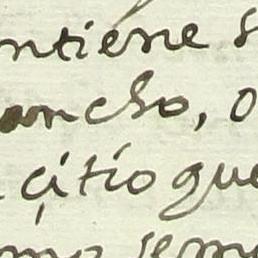 ntiene s
ancho, o
çitio que